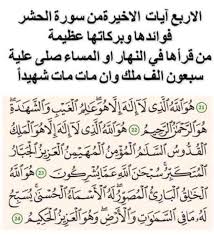 الاربع آيات الاخيرة من سورة الحشر
فوائدها وبركاتها عظيمة
من قرأها في النهار او المساء صلى علية
سبعون الف ملك وان مات مات شهيداً
(21) هُوَ اللَّهُ الَّذِي لَا إِلَٰهَ إِلَّا هُوَ عَالِمُ الْغَيْبِ وَالشَّهَادَةِ
هُوَ الرَّحْمَٰنُ الرَّحِيمُ (22) هُوَ اللَّهُ الَّذِي لَا إِلَٰهَ إِلَّا هُوَ الْمَلِكُ
الْقُدُّوسُ السَّلَامُ الْمُؤْمِنُ الْمُهَيْمِنُ الْعَزِيزُ الْجَبَّارُ
الْمُتَكَبِّرُ سُبْحَانَ اللَّهِ عَمَّا يُشْرِكُونَ (23) هُوَ اللَّهُ
الْخَالِقُ الْبَارِئُ الْمُصَوِّرُ لَهُ الْأَسْمَاءُ الْحُسْنَىٰ يُسَبِّحُ
لَهُ مَا فِي السَّمَاوَاتِ وَالْأَرْضِ وَهُوَ الْعَزِيزُ الْحَكِيمُ (24)